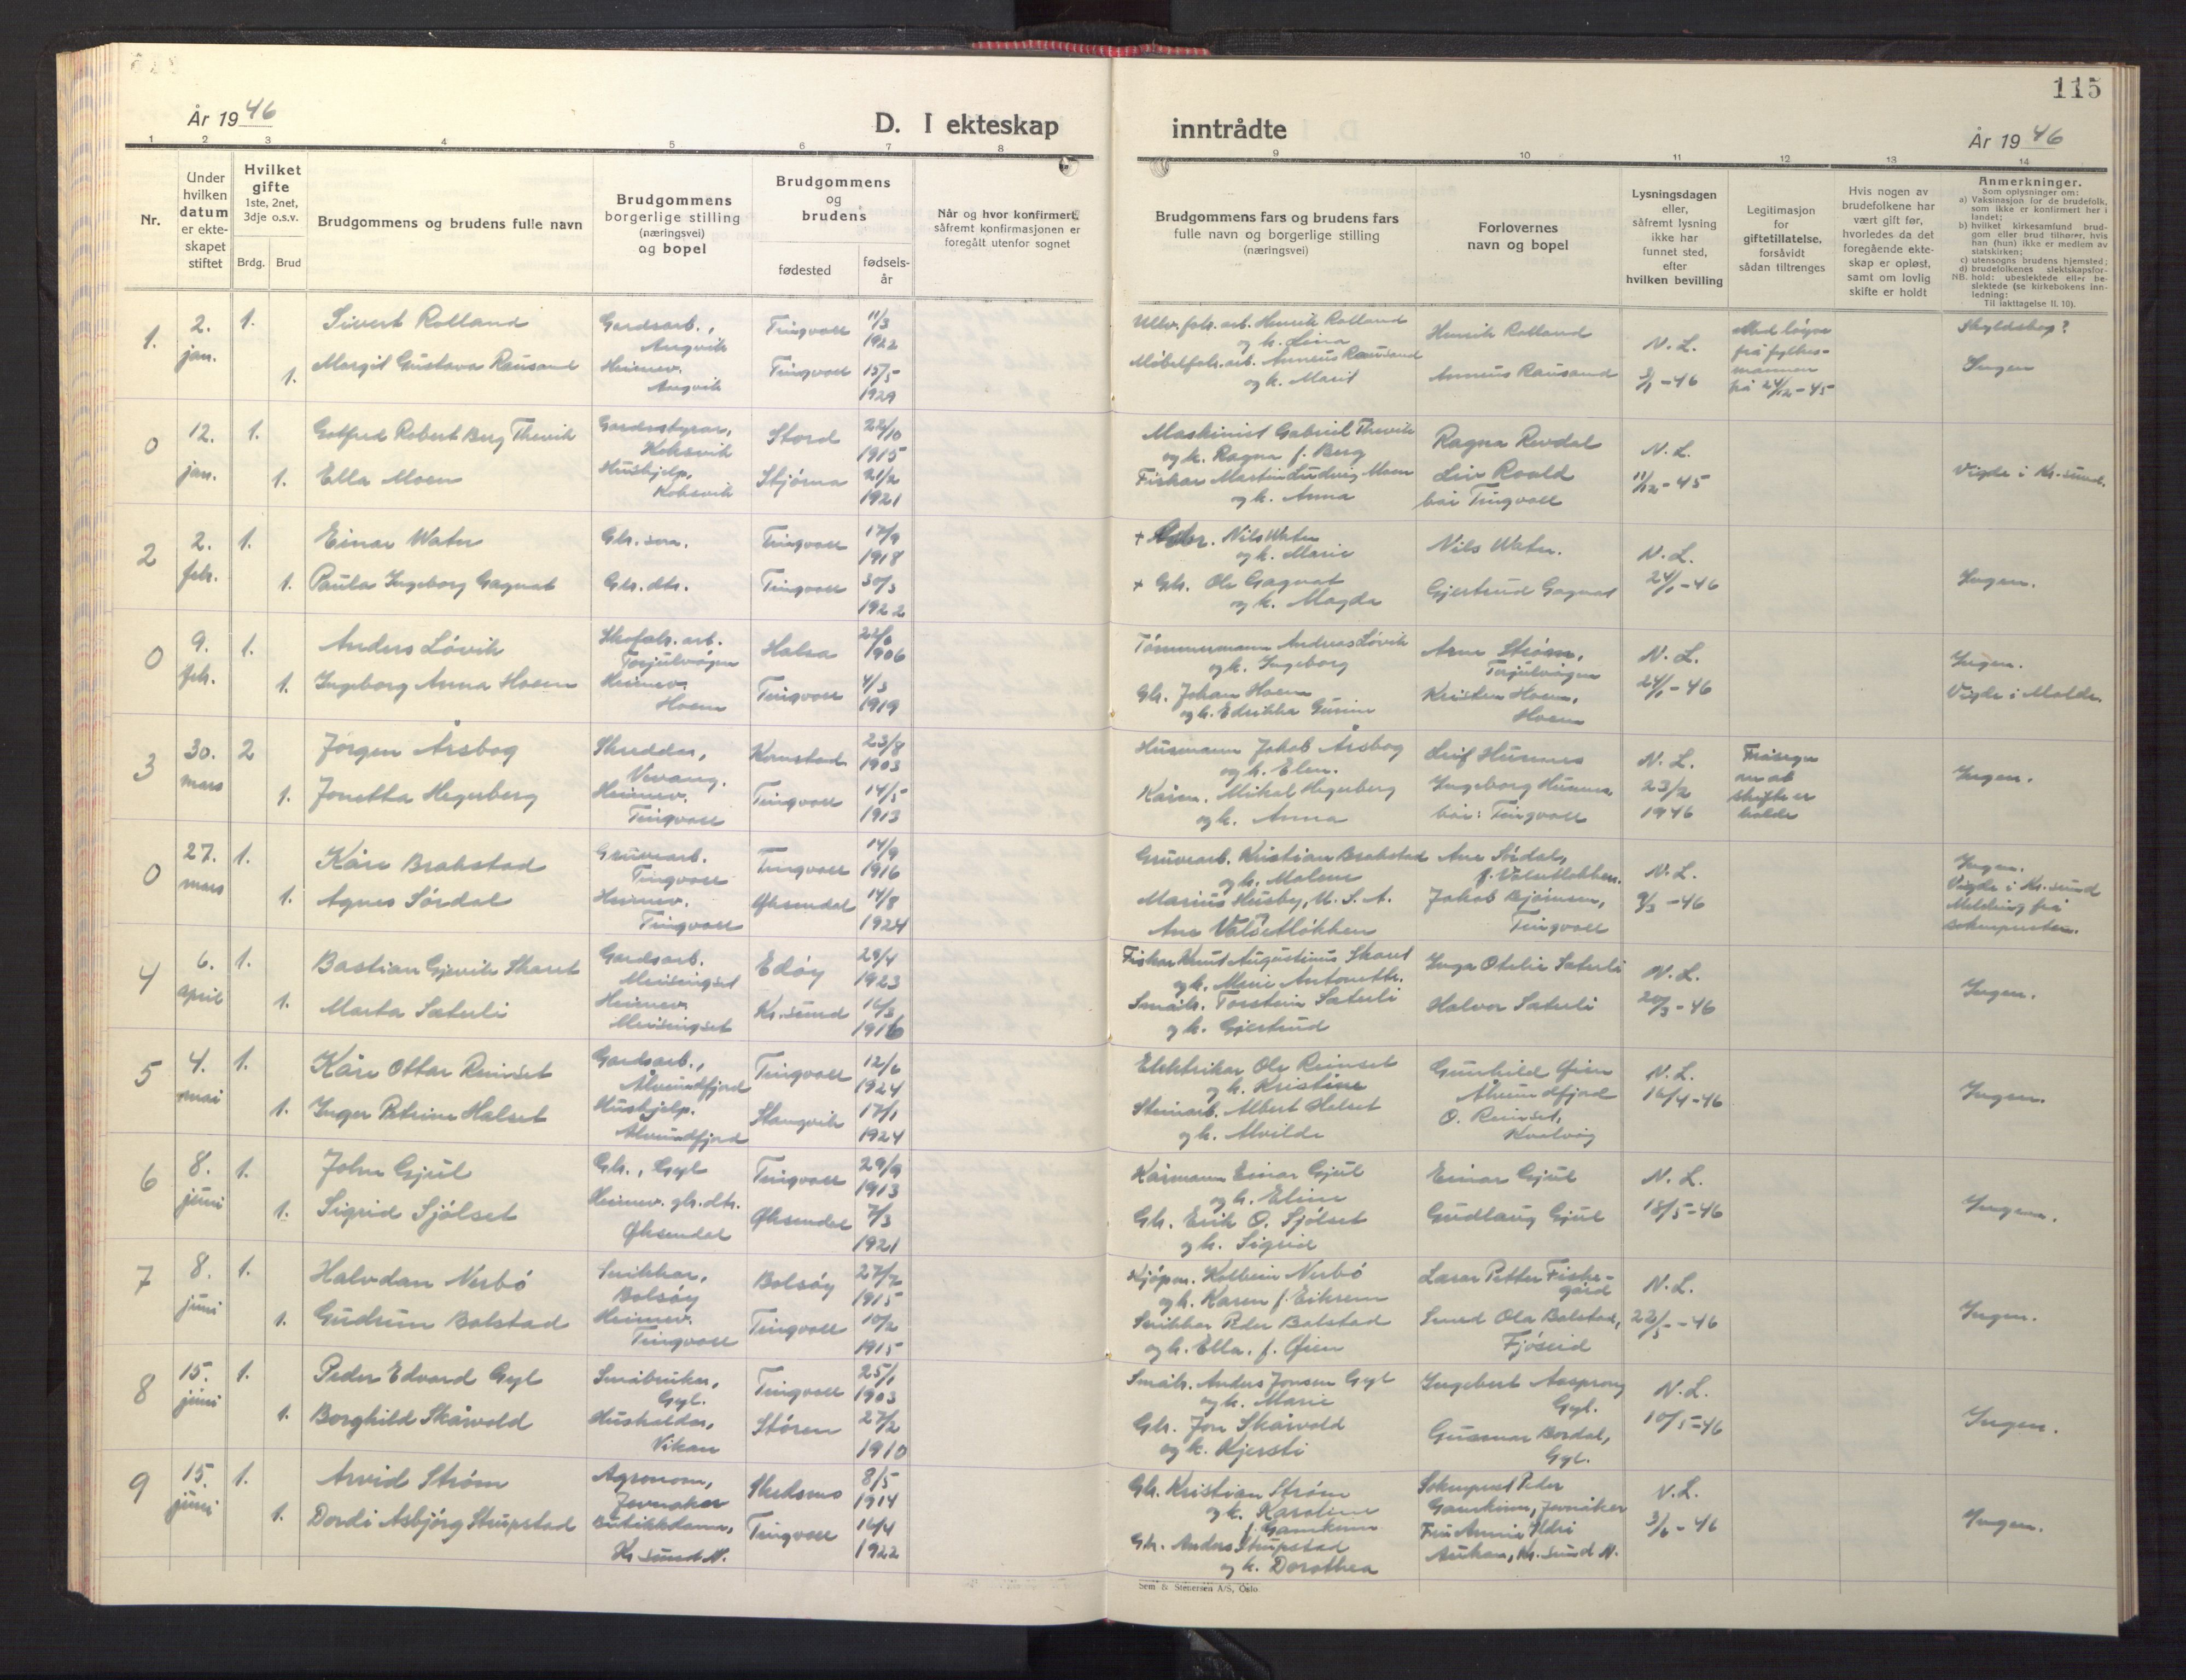 115
År 1946
D. I ekteskap inntrådte
År 1946
1 2 3 4 5 6 7 8 9 10 11 12 13 14
Nr.
Under hvilken datum er ekteskapet stiftet
Hvilket gifte 1ste, 2net, 3dje o.s.v.
Brdg. Brud
Brudgommens og brudens fulle navn
Brudgommens borgerlige stilling (næringsvei) og bopel
Brudgommens og brudens
fødested
fødselsår
Når og hvor konfirmert, såfremt konfirmasjonen er foregått utenfor sognet
Brudgommens fars og brudens fars fulle navn og borgerlige stilling (næringsvei)
Forlovernes navn og bopel
Lysningsdagen eller, såfremt lysning ikke har funnet sted, efter hvilken bevilling
Legitimasjon for giftetillatelse, forsåvidt sådan tiltrenges
Hvis nogen av brudefolkene har vært gift før, hvorledes da det foregående ekteskap er opløst, samt om lovlig skifte er holdt
Anmerkninger.
Som oplysninger om:
a) Vaksinasjon for de brudefolk, som ikke er konfirmert her i landet;
b) hvilket kirkesamfund brudgom eller brud tilhører, hvis han (hun) ikke er medlem av statskirken;
c) utensogns brudens hjemsted;
d) brudefolkenes slektskapsforhold: ubeslektede eller beslektede (se kirkebokens innledning:
NB. Til iakttagelse II. 10).
1. 2. jan. 1. Sivert Rolland Gardsarb., Angvik Tingvoll 11/3 1922 Henrik Rolland og k. Lina Henrik Rolland N. L. 3/1-46 Med løyve frå fylkesmannen frå 24/12-45 Skyldskap? Ingen
1. Margit Gustava Rausand Heimev. Angvik Tingvoll 15/5 1929 Møbelfabr.arb. Anneus Rausand og k. Marit Anneus Rausand
0 12. jan. 1. Gotfred Robert Berg Thevik Gardsstyrar, Koksvik Stord 22/10 1915 Maskinist Gabriel Thevik og k. Ragna f. Berg Ragna Revdal N. L. 11/12-45 Vigde i Kr.sund.
1. Ella Moen Hushjelp, Koksvik Stjørna 21/2 1921 Fiskar Martin Ludvig Moen og k. Anna Liv Roald bår Tingvoll
2 2. feb. 1. Einar Water Gbr. son. Tingvoll 17/9 1918 + Nils Water og k. Marie Nils Water. N. L. 24/1-46 Ingen.
1. Paula Ingeborg Gagnat Gbr. dtr. Tingvoll 30/3 1922 + Gbr. Ole Gagnat og k. Magda Gjertrud Gagnat
0 9. feb. 1. Anders Løvik Skofabr. arb. Torjulvågen Halsa 1906 Tømmermann Andreas Løvik og k. Ingeborg Arne Strøm, Torjulvågen N. L. 24/1-46 Ingen. Vigde i Molde.
1. Ingeborg Anna Hoem Heimev. Hoem Tingvoll 4/3 1919 Gbr. Johan Hoem og k. Edrikka Gurine Kristen Hoem, Hoem
3 30. mars 2 Jørgen Årsbog Skredder, Vevang. Kornstad 23/8 1903 Husmann Jakob Årsbog og k. Elen. Leif Husnes N. L. 23/2 1946 Fråsegn om at skifte er halde Ingen.
1. Jonetta Hegerberg Heimev. Tingvoll Tingvoll 14/5 1913 Mikal Hegerberg og k. Anna Ingeborg Husnes bår: Tingvoll
0 27. mars 1. Kåre Brakstad Gruvearb. Tingvoll Tingvoll 14/9 1916 Gruvearb. Kristian Brakstad og k. Malene Ane Sørdal, N. L. 9/3-46 Ingen. Vigde i Kr.sund Melding frå soknepresten.
1. Agnes Sørdal Heimev. Tingvoll Øksendal 14/8 1924 Marius Husby, U. S. A. Ane Jakob Bjørnsen, Tingvoll
4 6. april 1. Bastian Gjevik Skaret Gardsarb. Meisingset Edøy 29/4 1923 Fiskar Knut Augustinus Skaret og k. Mine Antonette. Inga Otelie Sæterli N. L. 20/3-46 Ingen.
1. Marta Sæterli Heimev. Meisingset Kr.sund 16/3 1916 Småbr. Torstein Sæterli og k. Gjertrud Halvor Sæterli
5 4. mai 1. Kåre Ottar Reinset Gardsarb., Ålvundfjord Tingvoll 12/6 1924 Elektrikar Ole Reinset og k. Kristine Gunhild Øien Ålvundfjord N. L. 16/4-46 Ingen.
1. Inger Petrine Halset Hushjelp. Ålvundfjord Stangvik 17/1 1924 Steinarb. Albert Halset og k. Alvilde O. Reinset, Kvalvåg
6 8. juni 1. John Gjul Gbr., Gyl Tingvoll 29/9 1913 Kårmann Einar Gjul og k. Eline Einar Gjul N. L. 18/5-46 Ingen.
1. Sigrid Sjølset Heimev. gbr. dtr. Øksendal Øksendal 7/3 1921 Gbr. Erik O. Sjølset og k. Sigrid Gudlaug Gjul
7 8. juni 1. Halvdan Nerbø Snikkar, Bolsøy Bolsøy 27/7 1915 Kjøpm. Kolbein Nerbø og k. Karen f. Eiksem Lærar Petter Fiskegård N. L. 22/5-46 Ingen.
1. Gudrun Bolstad Heimev. Tingvoll Tingvoll 10/2 1915 Snikkar Peder Bolstad og k. Ella. f. Øien Smed Ola Bolstad, Fjøseid
8 15. juni 1. Peder Edvard Gyl Småbruker, Gyl. Tingvoll 25/1 1903 Småbr. Anders Jonsen Gyl og k. Marie Ingebert Aasprong Gyl. N. L. 10/5-46 Ingen.
1. Borghild Skårvold Husholder, Vikan Støren 27/2 1910 Gbr. Jon Skårvold og k. Kjersti Gunnar Bordal, Gyl.
9 15. juni 1. Arvid Strøm Agronom, Jevnaker Skedsmo 8/5 1914 Gbr. Kristian Strøm og k. Karoline f. Gamkinn Sokneprest Peder Gamkinn, Jevnaker N. L. 3/6-46 Ingen.
1. Dordi Asbjørg Strupstad Butikkdame, Kr.sund N. Tingvoll 16/4 1922 Gbr. Anders Strupstad og k. Dorothea Fru Annie Ildri Aukan, Kr.sund N.
Sem & Stenersen A/S, Oslo